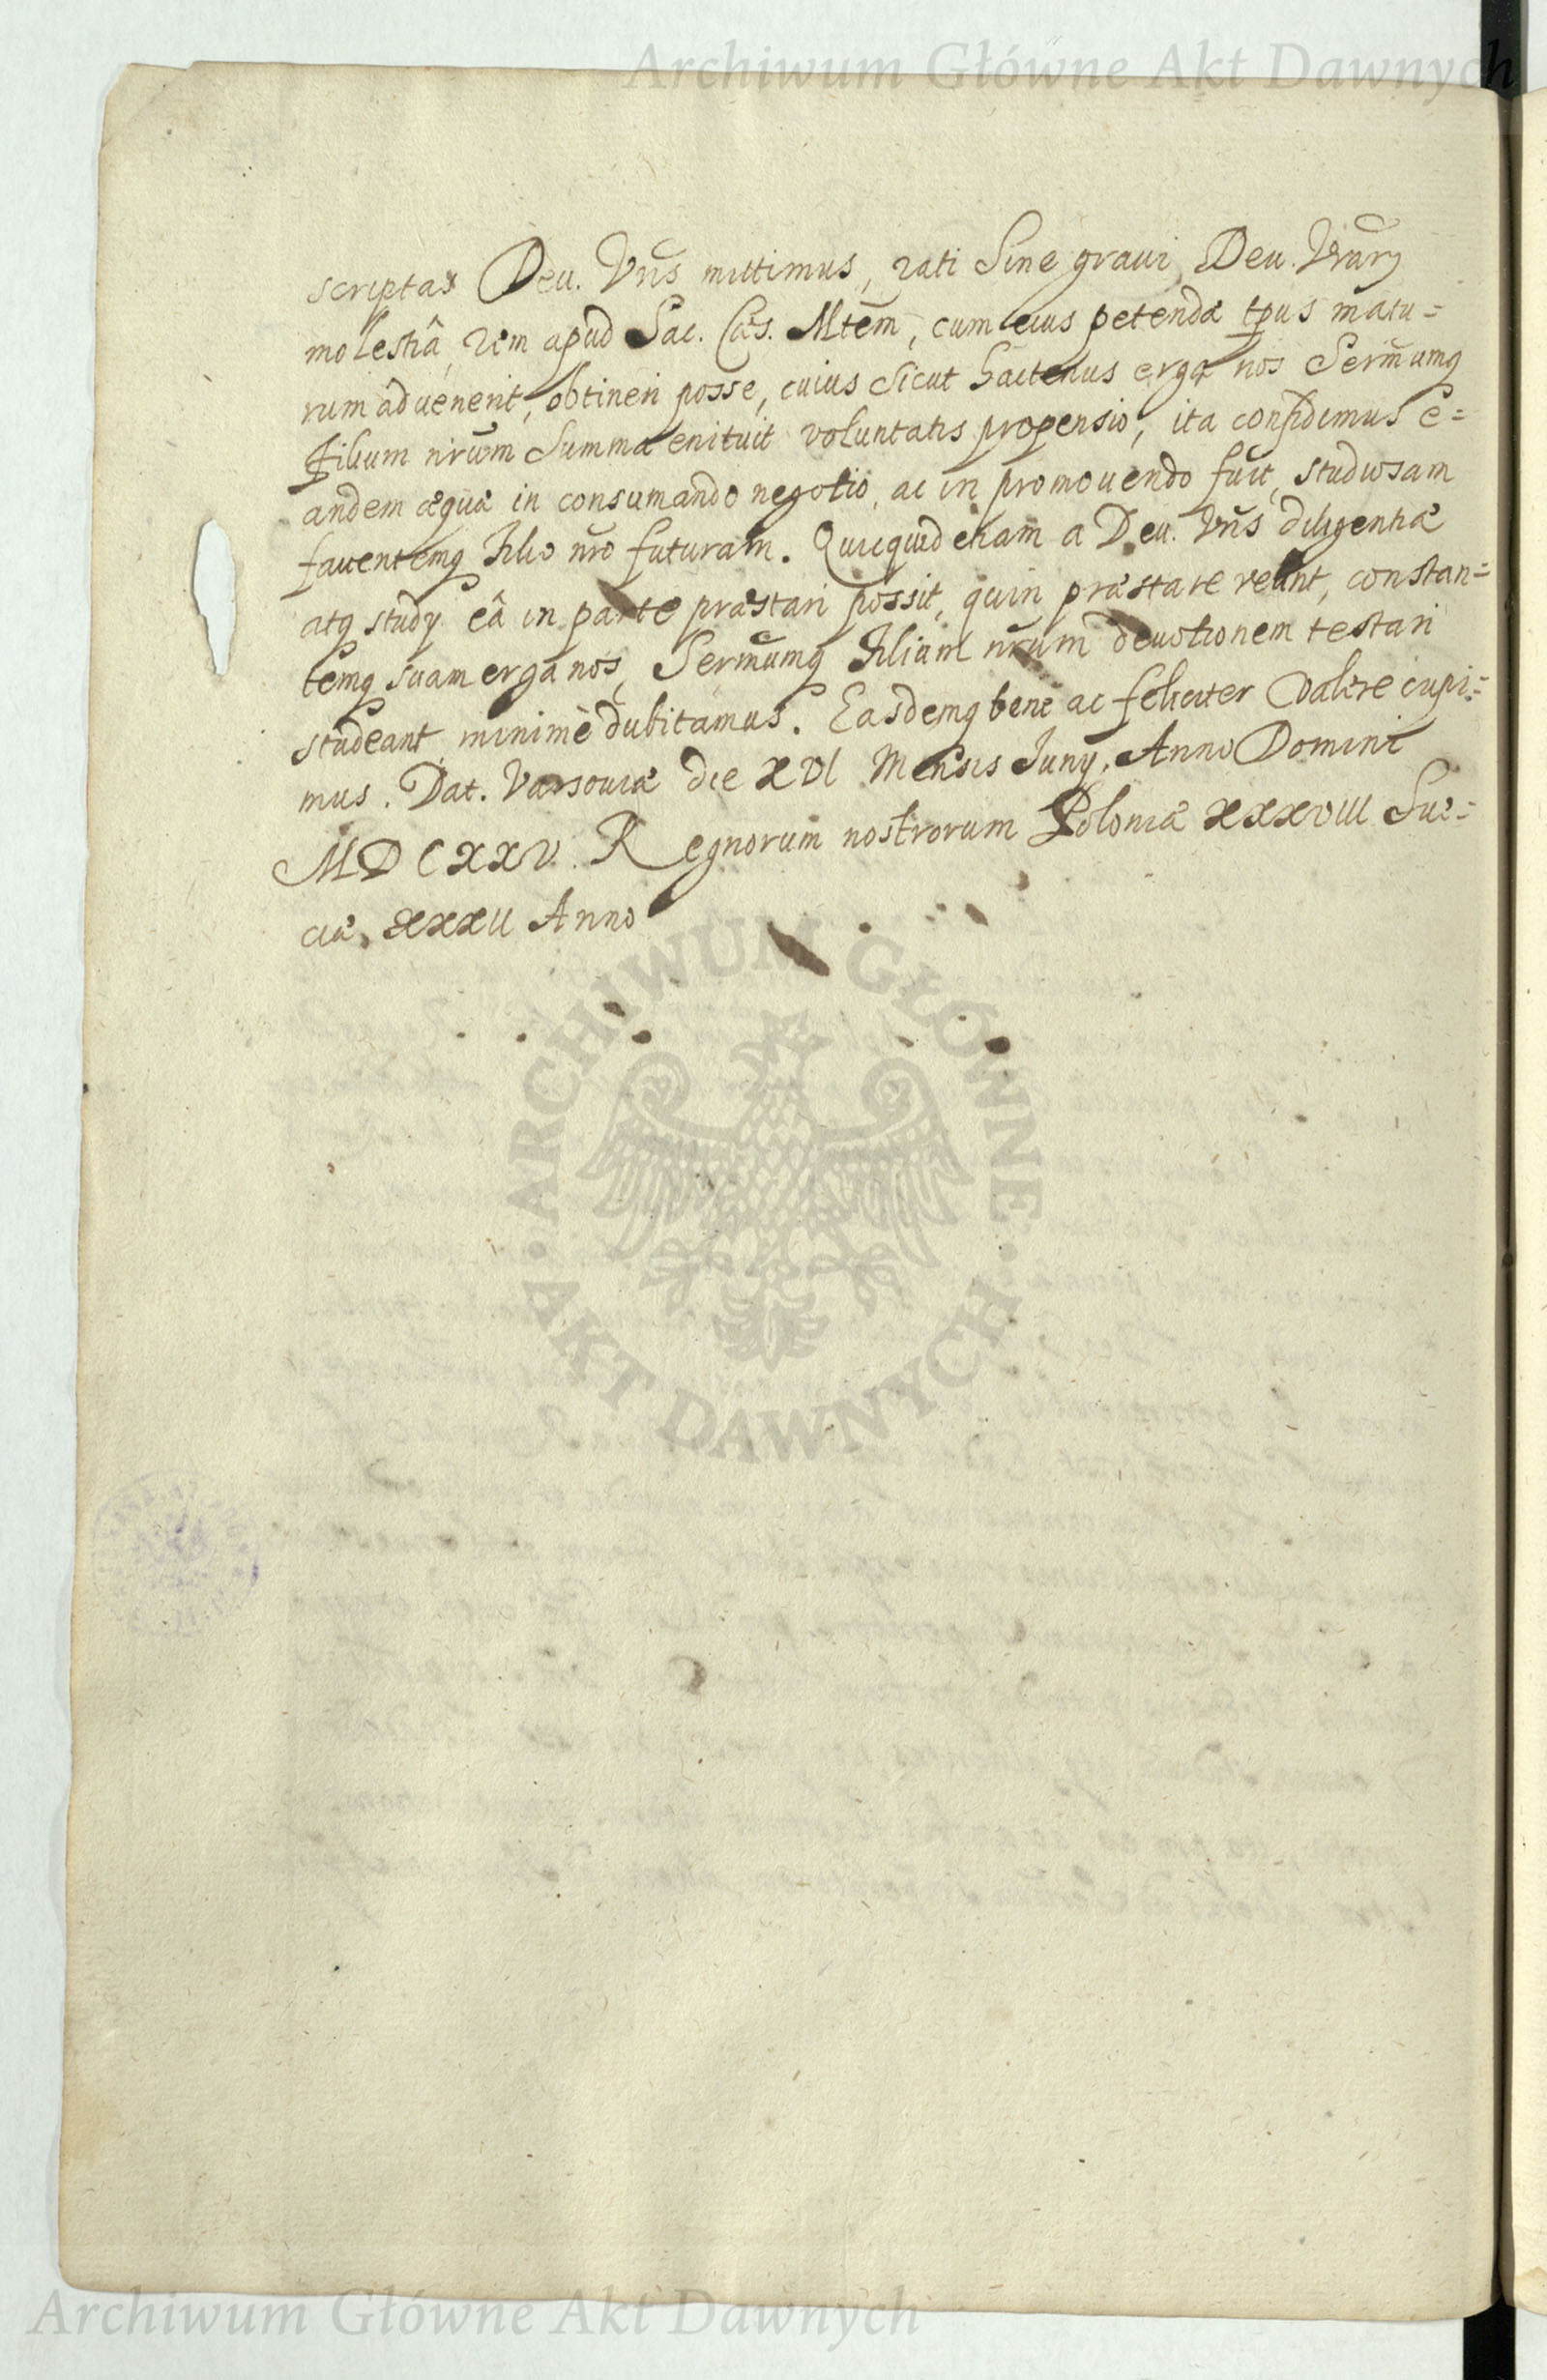 Archiwum Główne Akt Dawnych
scriptas Deu. Vr̃is mittimus, rati sine graui Deu. Vrãrũ
molestiâ, rem apud Sac. Cæs. Mtẽm, cum eius petendæ tp̃us matu=
rum aduenerit, obtineri posse, cuius sicut hactenus erga nos Sermũmq
Filium nr̃um summa enituit voluntatis propensio, ita confidimus e=
andem æquè in consumando negotio, ac in promouendo fuit, studiosam
fauentemq Filio nr̃o futuram. Quicquid etiam a Deu. Vr̃is diligentiæ
atq studij eâ in parte præstari possit, quin præstare velint, constan=
temq suam erga nos, Sermũmq Filium nr̃um deuotionem testari
studeant, minimè dubitamus. Easdemq bene ac feliciter valere cupi=
mus. Dat. Varsouiæ die XVI Mensis Junij. Anno Domini
MDCXXV. Regnorum nostrorum Poloniæ XXXVIII Sue=
ciæ XXXII Anno
ARCHIWUM GŁÓWNE
AKT DAWNYCH
Archiwum Główne Akt Dawnych